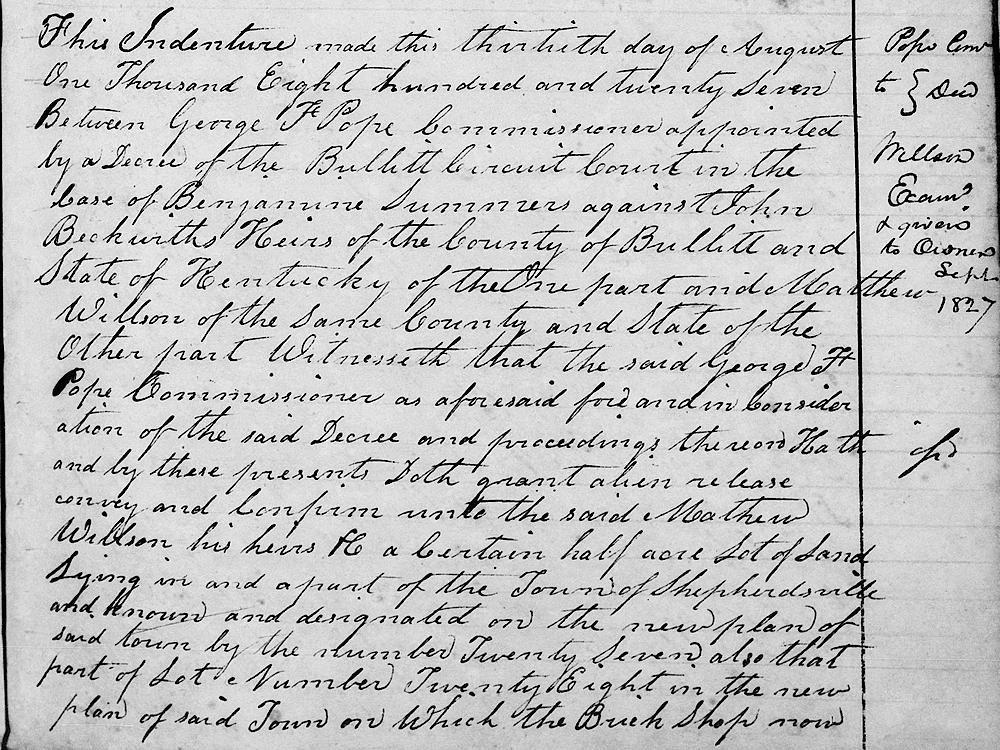 This Indenture made this thirtieth day of August
One Thousand Eight hundred and twenty Seven
Between George F. Pope Commissioner appointed
by a Decree of the Bullitt Circuit Court in the
Case of Benjamine Summers against John
Beckwiths Heirs of the County of Bullitt and
State of Kentucky of the One part and Matthew
Willson of the Same County and State of the
Other part Witnesseth that the said George F.
Pope Commissioner as aforesaid for and in Consider
ation of the said Decree and proceedings thereon Hath
and by these presents Doth grant alien release
convey and Confirm unto the said Mathew
Willson his heirs &c a Certain half acre Lot of Land
Lying in and a part of the Town of Shepherdsville
and known and designated on the new plan of
said town by the number Twenty Seven also that
part of Lot Number Twenty Eight in the new
plan of said Town on Which the Brick Shop now
Pope Comr
to } Deed
Willson
Examd
& given
to Owner
Sept
1827